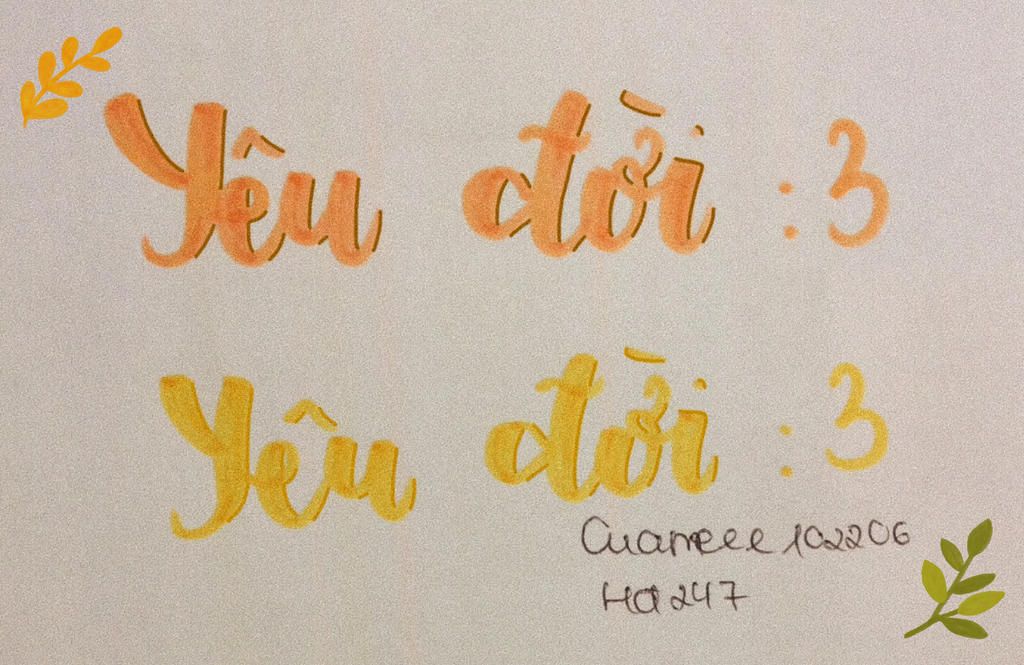 Yêu đời :3
Yêu đời :3
Cuameee 102206
Ha 247